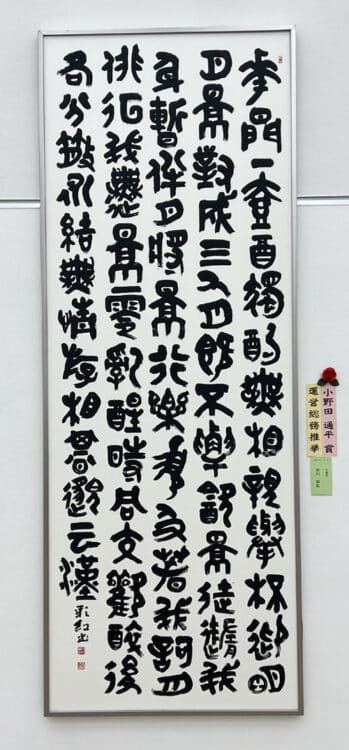 華間一壺酉獨酌無相親舉杯邀明
月景對成三人月既不解飲景徒隨我
身暫伴月將景行樂須及春我謌月
徘徊我舞景零亂醒時同交歡醉後
各分散永結無情遊相期邈云漢
彩紅书
小野田 通平 賞
運営総務推挙